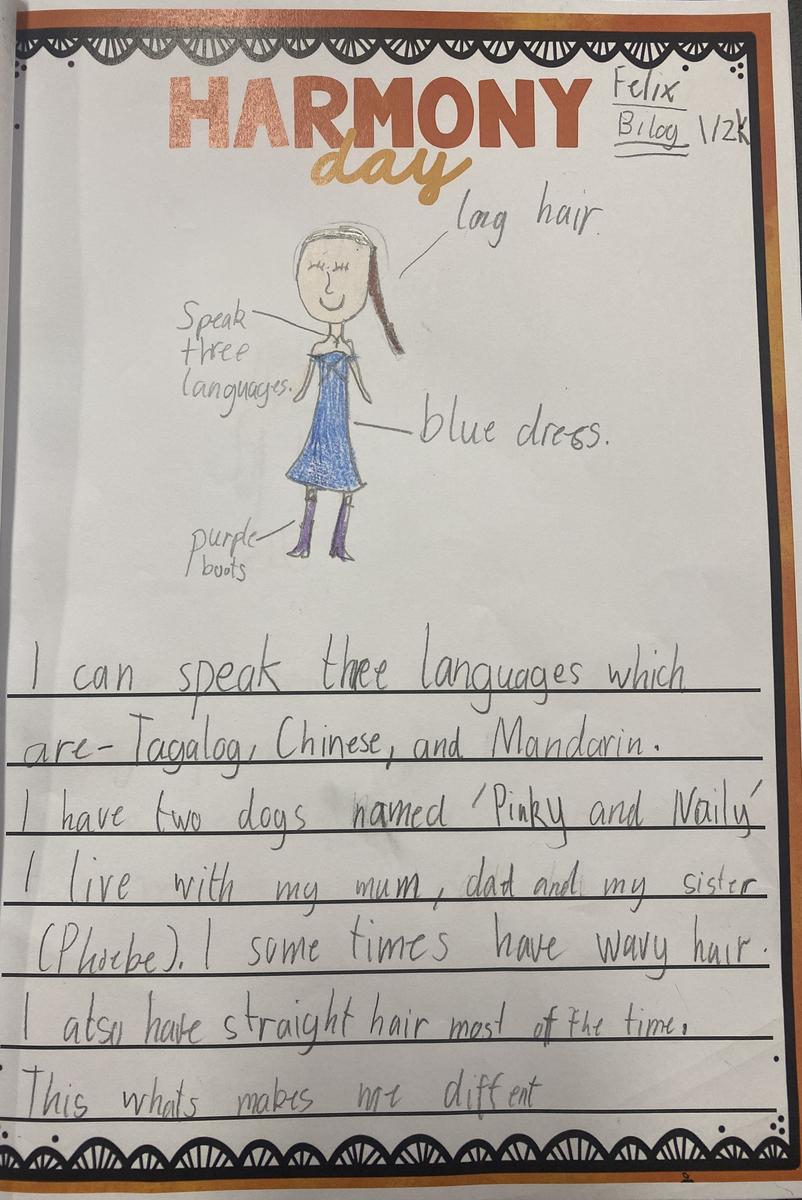 HARMONY
day
Felix
Bilog 1/2K
long hair.
Speak
three
languages.
blue dress.
purple
boots
I can speak three languages which
are- Tagalog, Chinese, and Mandarin.
I have two dogs named 'Pinky and Naily'
I live with my mum, dad and my sister
(Phoebe). I some times have wavy hair.
I also have straight hair most of the time.
This whats makes me diffent